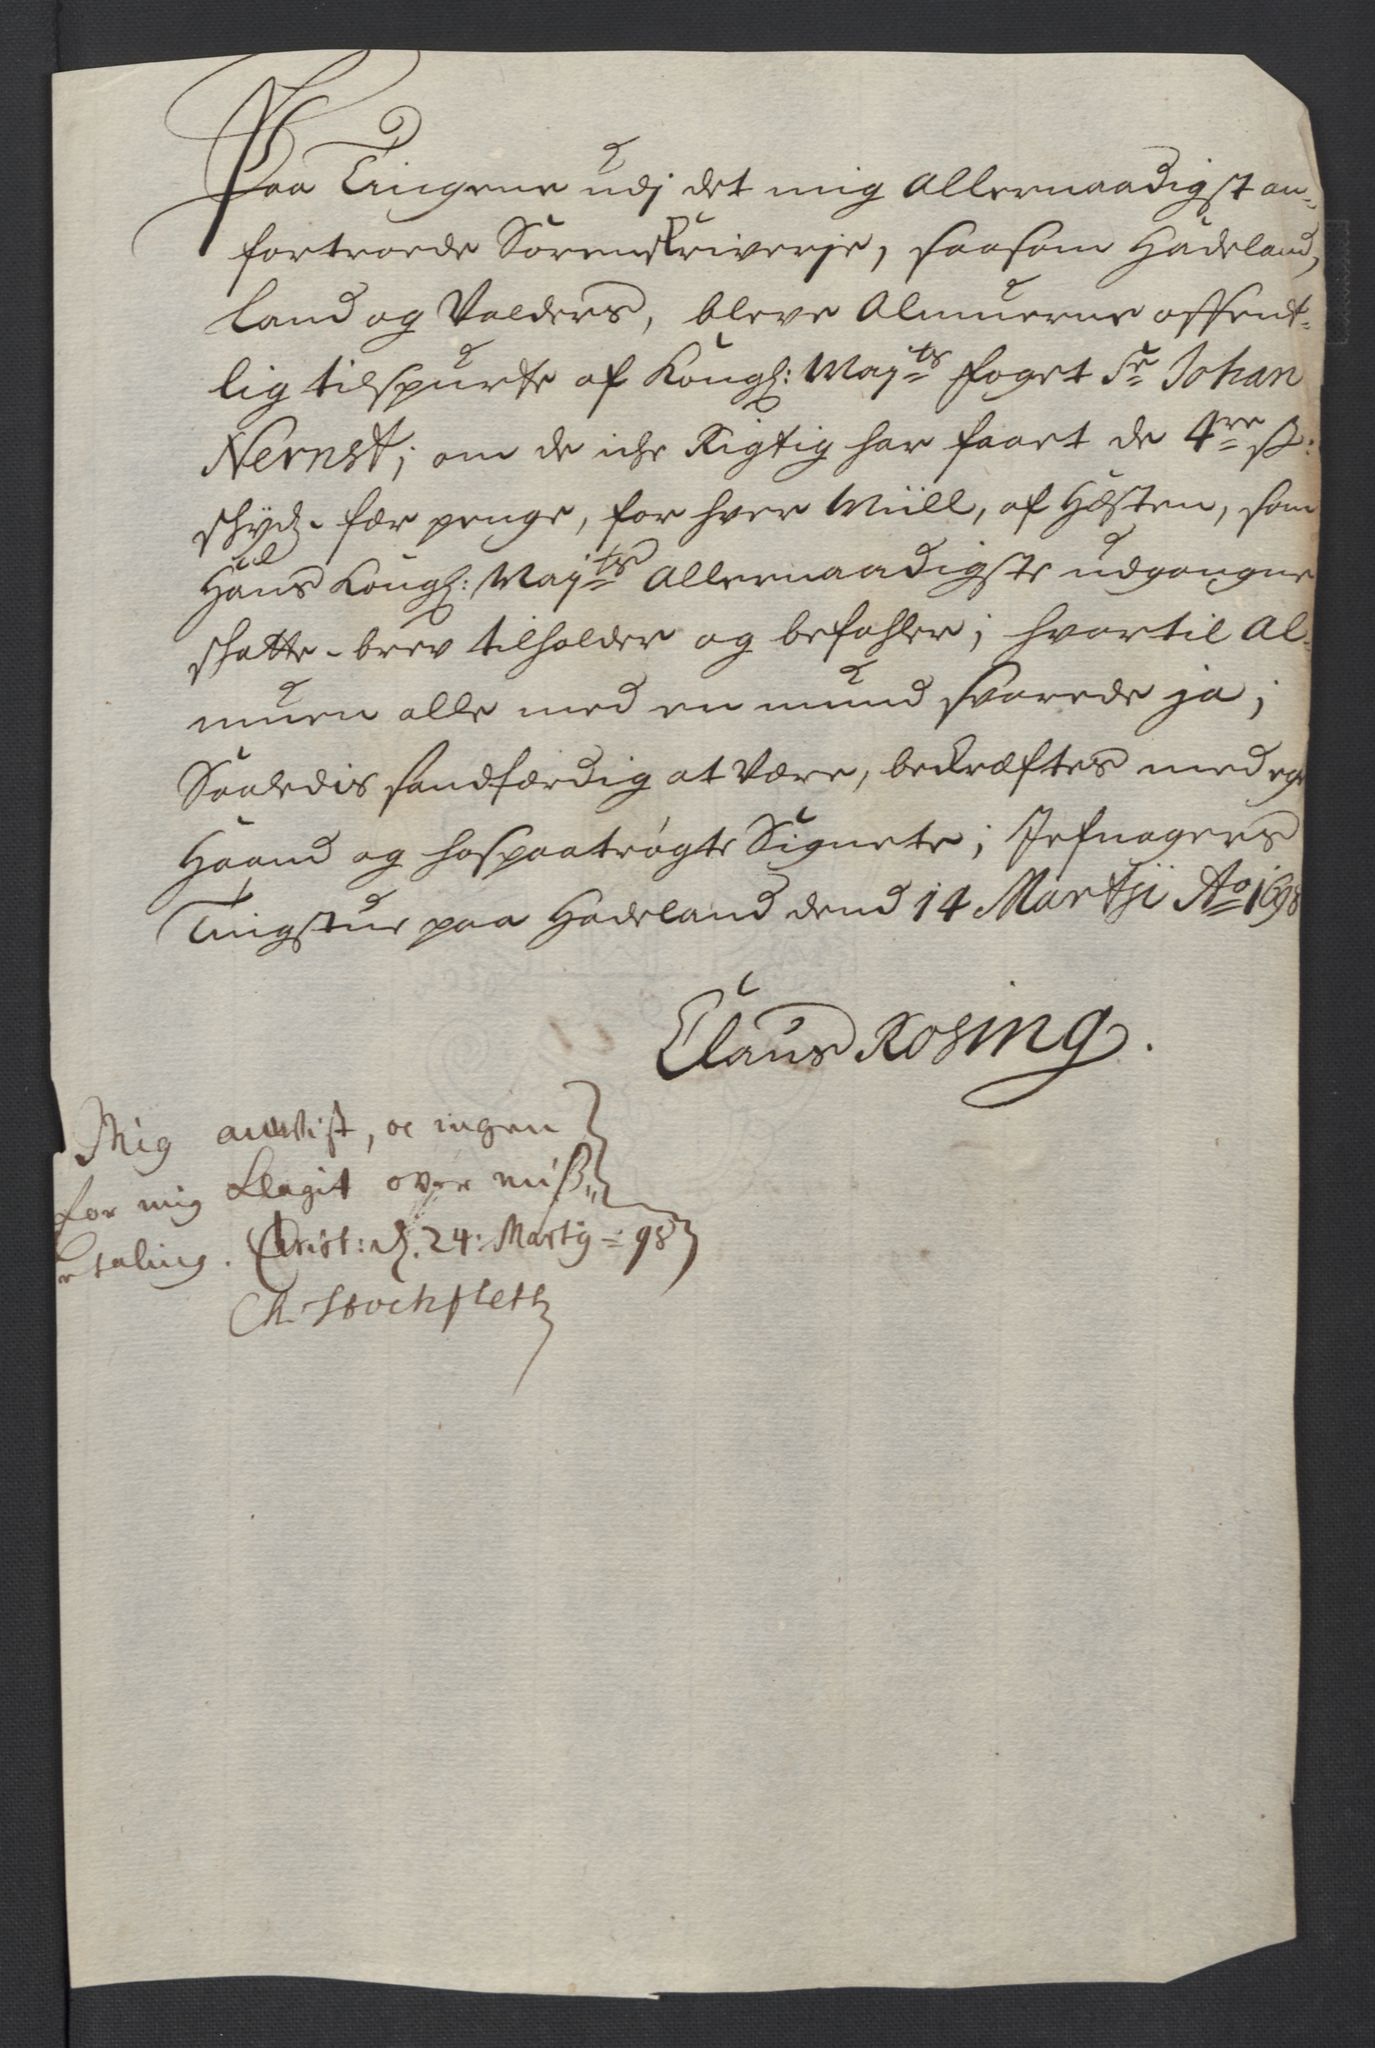 Paa Tingene udj det mig Allernaadigst an-
fortroede Sorenskriverje, saasom Hadeland,
Land og Valders, bleve Almuerne offent-
lig tilspurte af Kongl: Mayts foget Sr Johan
Nernst; om de iche Rigtig har faaet de 4re ß:
schyds-fær penge, for hver Miill, af Hæsten, som
Hans Kongl: Mayts Allernaadigste udgangne
schatte-brev tilholder og befahler; hvortil Al-
muen alle med en mund svarede ja;
Saaledis sandfærdig at være, bekræftes med egen
Haand og hospaatrøgte Signete; Jefnagers
Tingstue paa Hadeland dend 14 Martji Ao 1698
Claus Rosing.
Mig anvist, oc ingen
for mig klagit over miß-
betaling. Christ: d. 24: Martij = 98
Ch Stochfleth